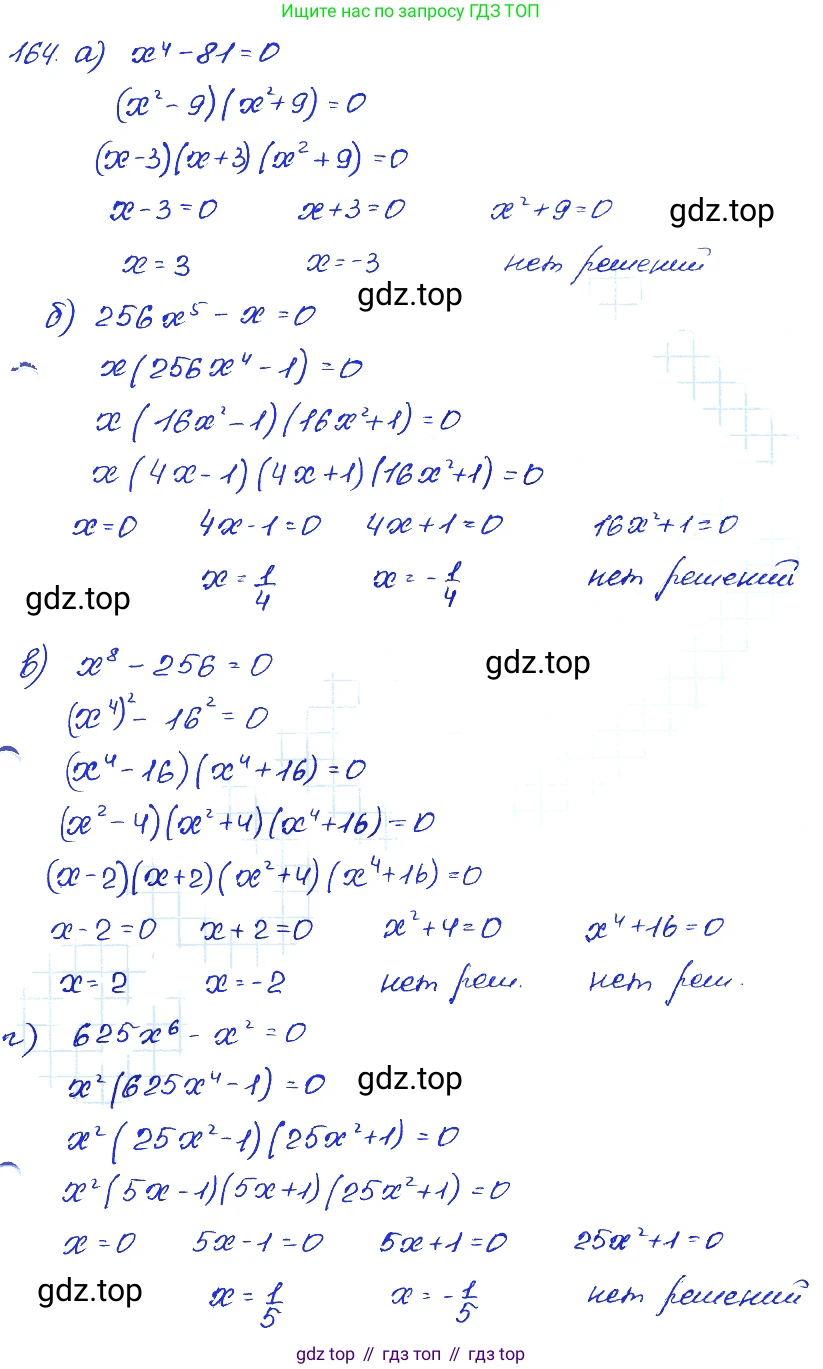 Ищите нас по запросу ГДЗ ТОП
164. а) x⁴ - 81 = 0
(x² - 9)(x² + 9) = 0
(x - 3)(x + 3)(x² + 9) = 0
x - 3 = 0 x + 3 = 0 x² + 9 = 0 gdz.top
x = 3 x = -3 нет решений
gdz.top
б) 256x⁵ - x = 0
x(256x⁴ - 1) = 0
x(16x² - 1)(16x² + 1) = 0
x(4x - 1)(4x + 1)(16x² + 1) = 0
x = 0 4x - 1 = 0 4x + 1 = 0 16x² + 1 = 0
x = 1/4 x = -1/4 нет решений
gdz.top
в) x⁸ - 256 = 0 gdz.top
(x⁴)² - 16² = 0
(x⁴ - 16)(x⁴ + 16) = 0
(x² - 4)(x² + 4)(x⁴ + 16) = 0
(x - 2)(x + 2)(x² + 4)(x⁴ + 16) = 0
x - 2 = 0 x + 2 = 0 x² + 4 = 0 x⁴ + 16 = 0
x = 2 x = -2 нет реш. нет реш.
г) 625x⁶ - x² = 0
x²(625x⁴ - 1) = 0 gdz.top
x²(25x² - 1)(25x² + 1) = 0
x²(5x - 1)(5x + 1)(25x² + 1) = 0
x = 0 5x - 1 = 0 5x + 1 = 0 25x² + 1 = 0
gdz.top x = 1/5 x = -1/5 нет решений
gdz top // гдз топ // гдз top